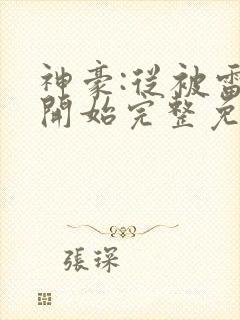 神豪:從被雷
開始完整免
張琛